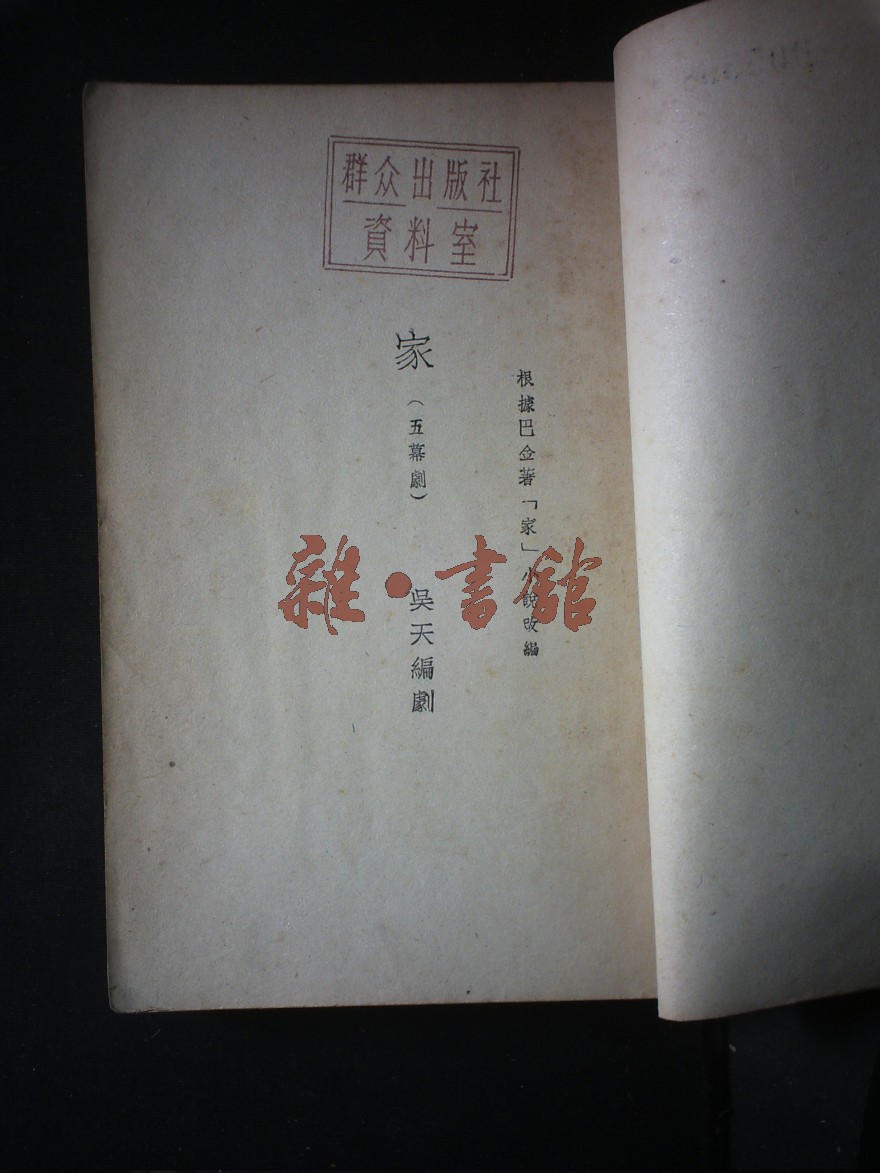 群众出版社
資料室
根據巴金著「家」小說改編
家
（五幕劇）
吳天編劇
雜·書館